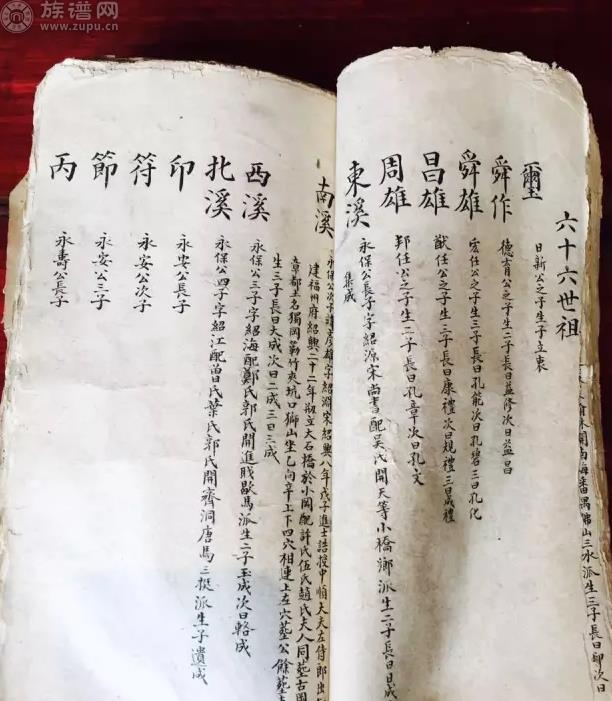 族谱网
www.zupu.cn
六十六世祖
璽
日新公之子生子立衷
舜作
德育公之子生二子長曰益修次曰益昌
舜雄
宏任公之子生三子長曰孔能次曰孔碧三曰孔化
昌雄
猷任公之子生三子長曰康禮次曰規禮三曰成禮
周雄
邦任公之子生二子長曰孔章次曰孔文
東溪
永保公長子字紹源宋尚書配吴氏開天等小橋鄉派生二子長曰日成
集成
南溪
永保公次子諱彦雄字紹淵宋紹興八年戊子進士誥授中順大夫左侍郎出
建福州府紹興二十二年剏立大石橋於小岡配許氏伍氏趙氏夫人同塟古岡
章都土名獨岡簕竹夾坑口獅山坐乙向辛上下四穴相連上左穴塟公餘塟
生三子長曰大成次曰二成三曰三成
西溪
永保公三子字紹海配鄭氏郭氏開進賎歇馬派生二子玉成次曰輅成
北溪
永保公四子字紹江配曾氏葉氏郭氏開齊洞唐馬三挺派生子遺成
印
永安公長子
符
永安公次子
節
永安公三子
丙
永壽公長子